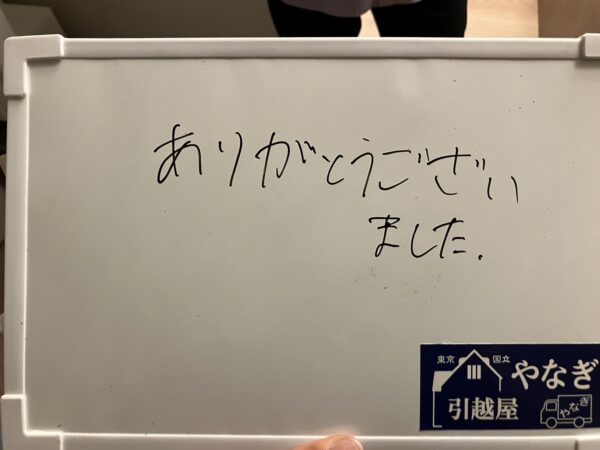 ありがとうござい
ました.
東京 国立
やなぎ
引越屋
やなぎ